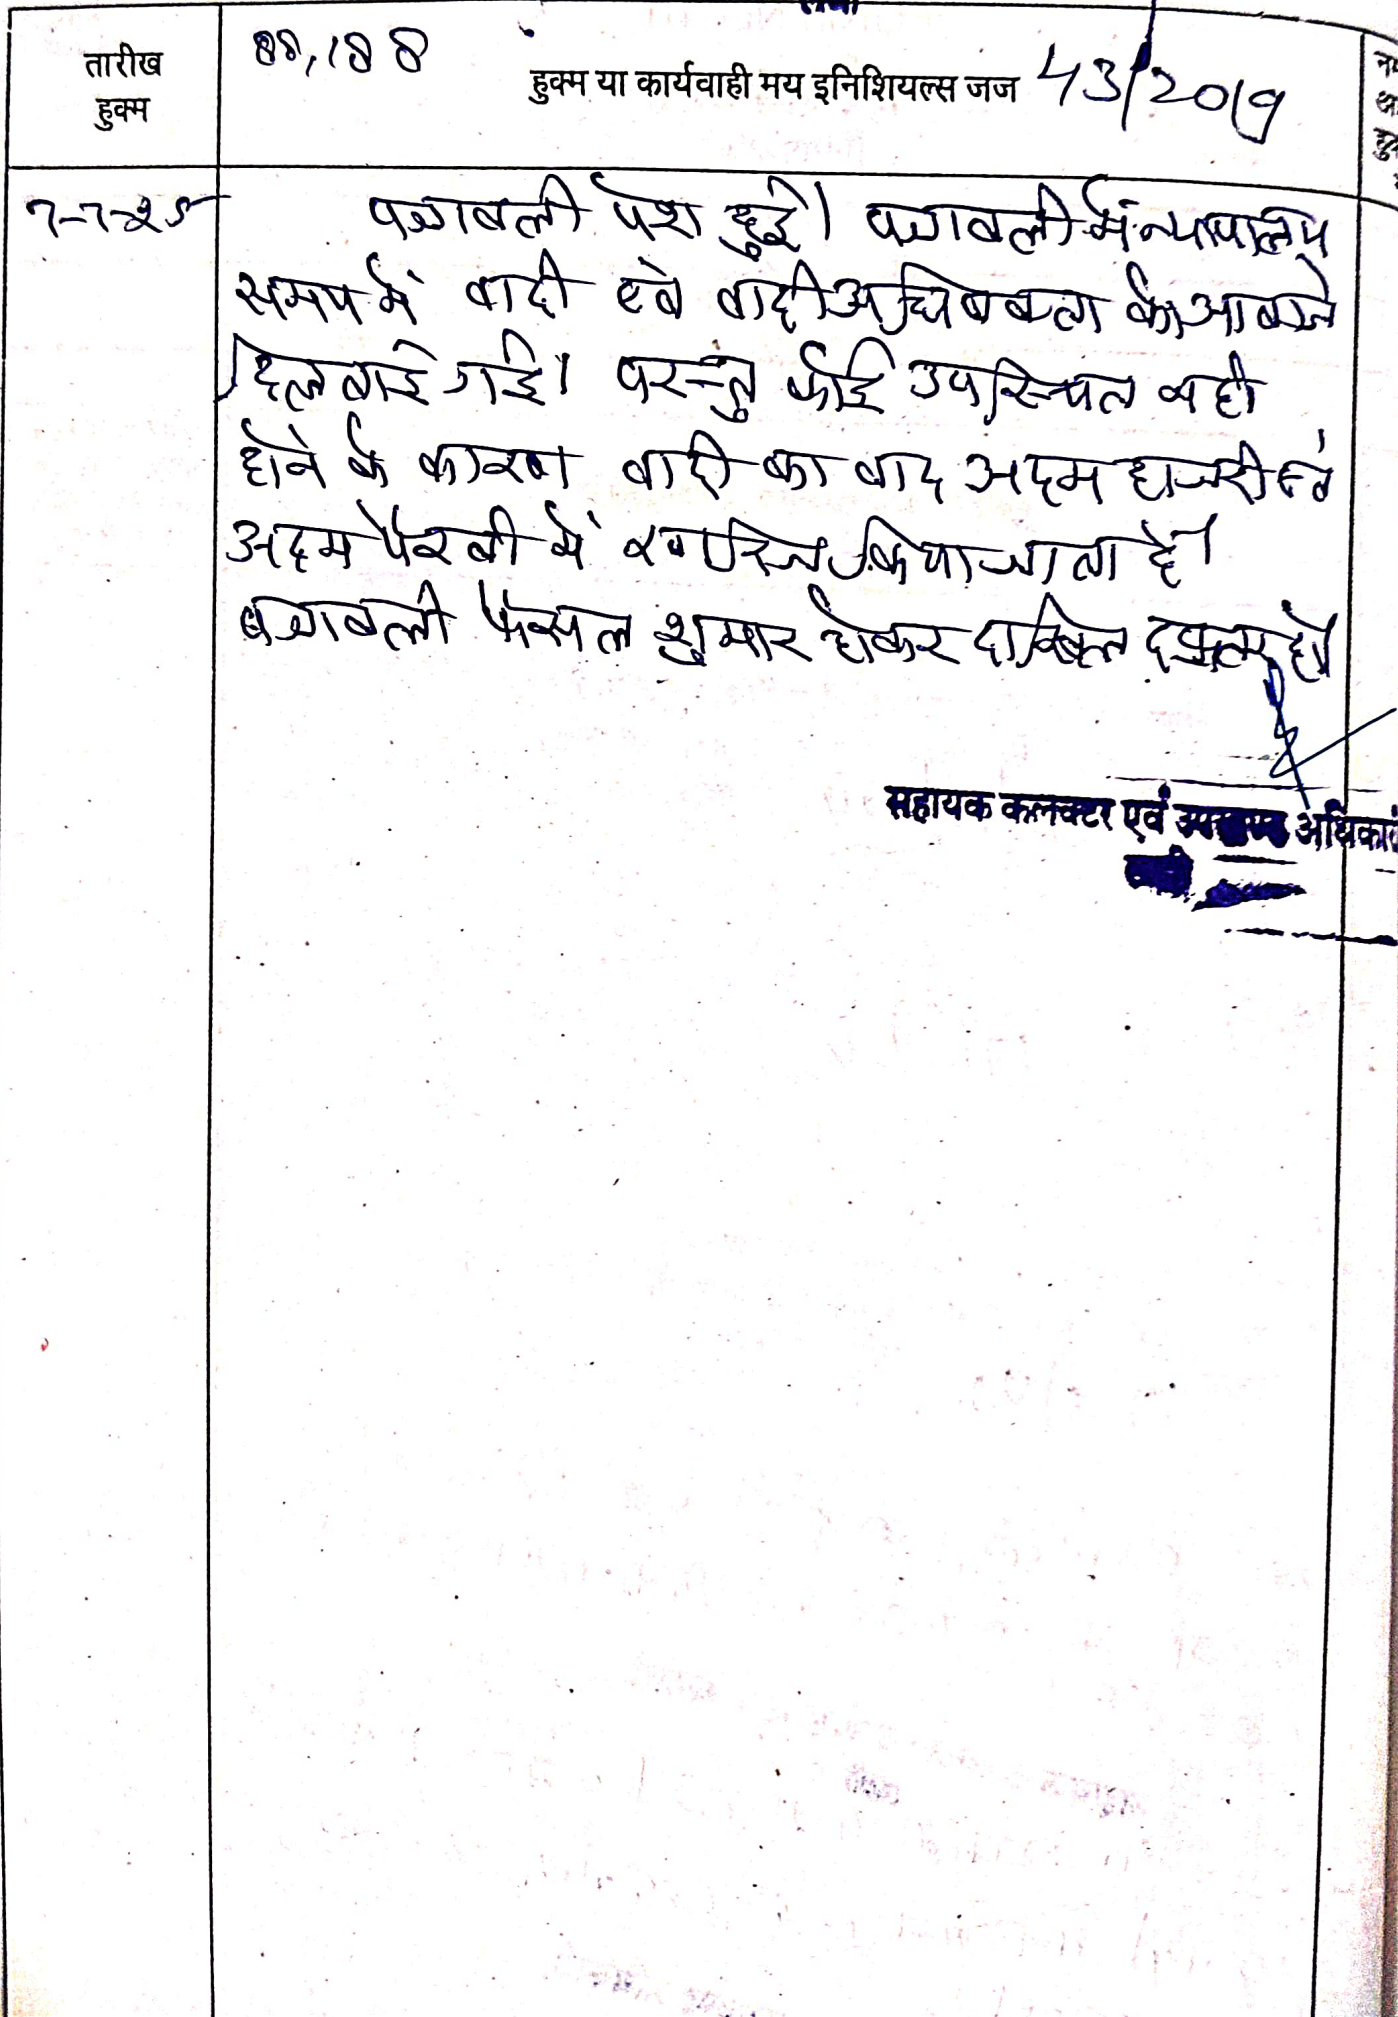 तारीख
हुक्म
88,188
हुक्म या कार्यवाही मय इनिशियल्स जज 43/2019
7-7-25 पत्रावली पेश हुई। पत्रावली में न्यायालय
समय में वादी एवं वादी अधिवक्ता को आवाजे
दिलवाई गई। परन्तु कोई उपस्थित नही
होने के कारण वादी का वाद अदम हाजरी एवं
अदम पैरवी में खारिज किया जाता है।
पत्रावली फैसल शुमार होकर दाखिल दफ्तर हो।
सहायक कलक्टर एवं उपखण्ड